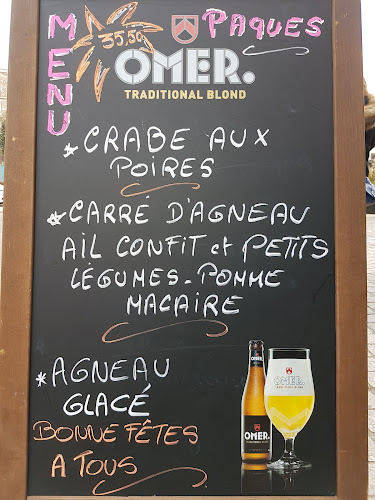 MENU
35,50
PAQUES
OMER.
TRADITIONAL BLOND
* CRABE AUX
POIRES
* CARRÉ D'AGNEAU
AIL CONFIT et PETITS
LÉGUMES - POMME
MACAIRE
* AGNEAU
GLACÉ
BONNE FÊTES
A TOUS
OMER.
TRADITIONAL BLOND
OMER.